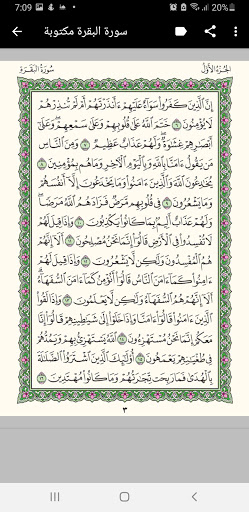 7:09
20%
سورة البقرة مكتوبة
الجزء الأول
سورة البقرة
إِنَّ ٱلَّذِينَ كَفَرُوا۟ سَوَآءٌ عَلَيْهِمْ ءَأَنذَرْتَهُمْ أَمْ لَمْ تُنذِرْهُمْ
لَا يُؤْمِنُونَ ٦ خَتَمَ ٱللَّهُ عَلَىٰ قُلُوبِهِمْ وَعَلَىٰ سَمْعِهِمْ ۖ وَعَلَىٰٓ
أَبْصَٰرِهِمْ غِشَٰوَةٌ ۖ وَلَهُمْ عَذَابٌ عَظِيمٌ ٧ وَمِنَ ٱلنَّاسِ
مَن يَقُولُ ءَامَنَّا بِٱللَّهِ وَبِٱلْيَوْمِ ٱلْءَاخِرِ وَمَا هُم بِمُؤْمِنِينَ ٨
يُخَٰدِعُونَ ٱللَّهَ وَٱلَّذِينَ ءَامَنُوا۟ وَمَا يَخْدَعُونَ إِلَّآ أَنفُسَهُمْ
وَمَا يَشْعُرُونَ ٩ فِى قُلُوبِهِم مَّرَضٌ فَزَادَهُمُ ٱللَّهُ مَرَضًا ۖ
وَلَهُمْ عَذَابٌ أَلِيمٌۢ بِمَا كَانُوا۟ يَكْذِبُونَ ١٠ وَإِذَا قِيلَ لَهُمْ
لَا تُفْسِدُوا۟ فِى ٱلْأَرْضِ قَالُوٓا۟ إِنَّمَا نَحْنُ مُصْلِحُونَ ١١ أَلَآ إِنَّهُمْ
هُمُ ٱلْمُفْسِدُونَ وَلَٰكِن لَّا يَشْعُرُونَ ١٢ وَإِذَا قِيلَ لَهُمْ
ءَامِنُوا۟ كَمَآ ءَامَنَ ٱلنَّاسُ قَالُوٓا۟ أَنُؤْمِنُ كَمَآ ءَامَنَ ٱلسُّفَهَآءُ ۗ
أَلَآ إِنَّهُمْ هُمُ ٱلسُّفَهَآءُ وَلَٰكِن لَّا يَعْلَمُونَ ١٣ وَإِذَا لَقُوا۟
ٱلَّذِينَ ءَامَنُوا۟ قَالُوٓا۟ ءَامَنَّا وَإِذَا خَلَوْا۟ إِلَىٰ شَيَٰطِينِهِمْ قَالُوٓا۟ إِنَّا
مَعَكُمْ إِنَّمَا نَحْنُ مُسْتَهْزِءُونَ ١٤ ٱللَّهُ يَسْتَهْزِئُ بِهِمْ وَيَمُدُّهُمْ
فِى طُغْيَٰنِهِمْ يَعْمَهُونَ ١٥ أُو۟لَٰٓئِكَ ٱلَّذِينَ ٱشْتَرَوُا۟ ٱلضَّلَٰلَةَ
بِٱلْهُدَىٰ فَمَا رَبِحَت تِّجَٰرَتُهُمْ وَمَا كَانُوا۟ مُهْتَدِينَ ١٦
٣